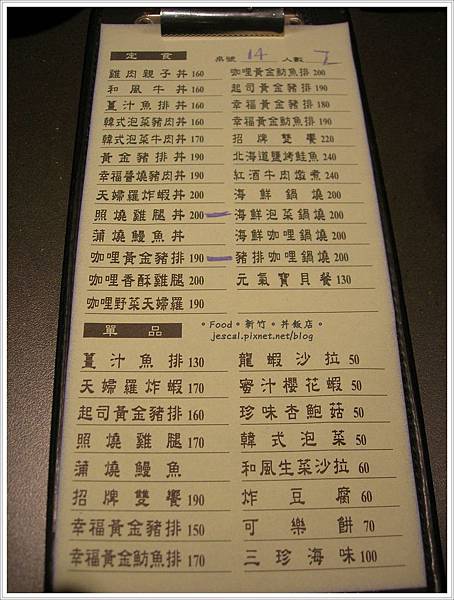 定食
桌號 14 人數 2
雞肉親子丼 160
和風牛丼 160
薑汁魚排丼 160
韓式泡菜豬肉丼 160
韓式泡菜牛肉丼 170
黃金豬排丼 190
幸福醬燒豬肉丼 190
天婦羅炸蝦丼 200
照燒雞腿丼 200
蒲燒鰻魚丼
咖哩黃金豬排 190
咖哩香酥雞腿 200
咖哩野菜天婦羅 190
咖哩黃金魴魚排 200
起司黃金豬排 190
幸福黃金豬排 180
幸福黃金魴魚排 190
招牌雙饗 220
北海道鹽烤鮭魚 240
紅酒牛肉燉煮 240
海鮮鍋燒 200
海鮮泡菜鍋燒 200
海鮮咖哩鍋燒 200
豬排咖哩鍋燒 200
元氣寶貝餐 130
。Food。新竹。丼飯店。
jescal.pixnet.net/blog
單品
薑汁魚排 130
天婦羅炸蝦 170
起司黃金豬排 160
照燒雞腿 170
蒲燒鰻魚
招牌雙饗 190
幸福黃金豬排 150
幸福黃金魴魚排 170
龍蝦沙拉 50
蜜汁櫻花蝦 50
珍味杏鮑菇 50
韓式泡菜 50
和風生菜沙拉 60
炸豆腐 60
可樂餅 70
三珍海味 100